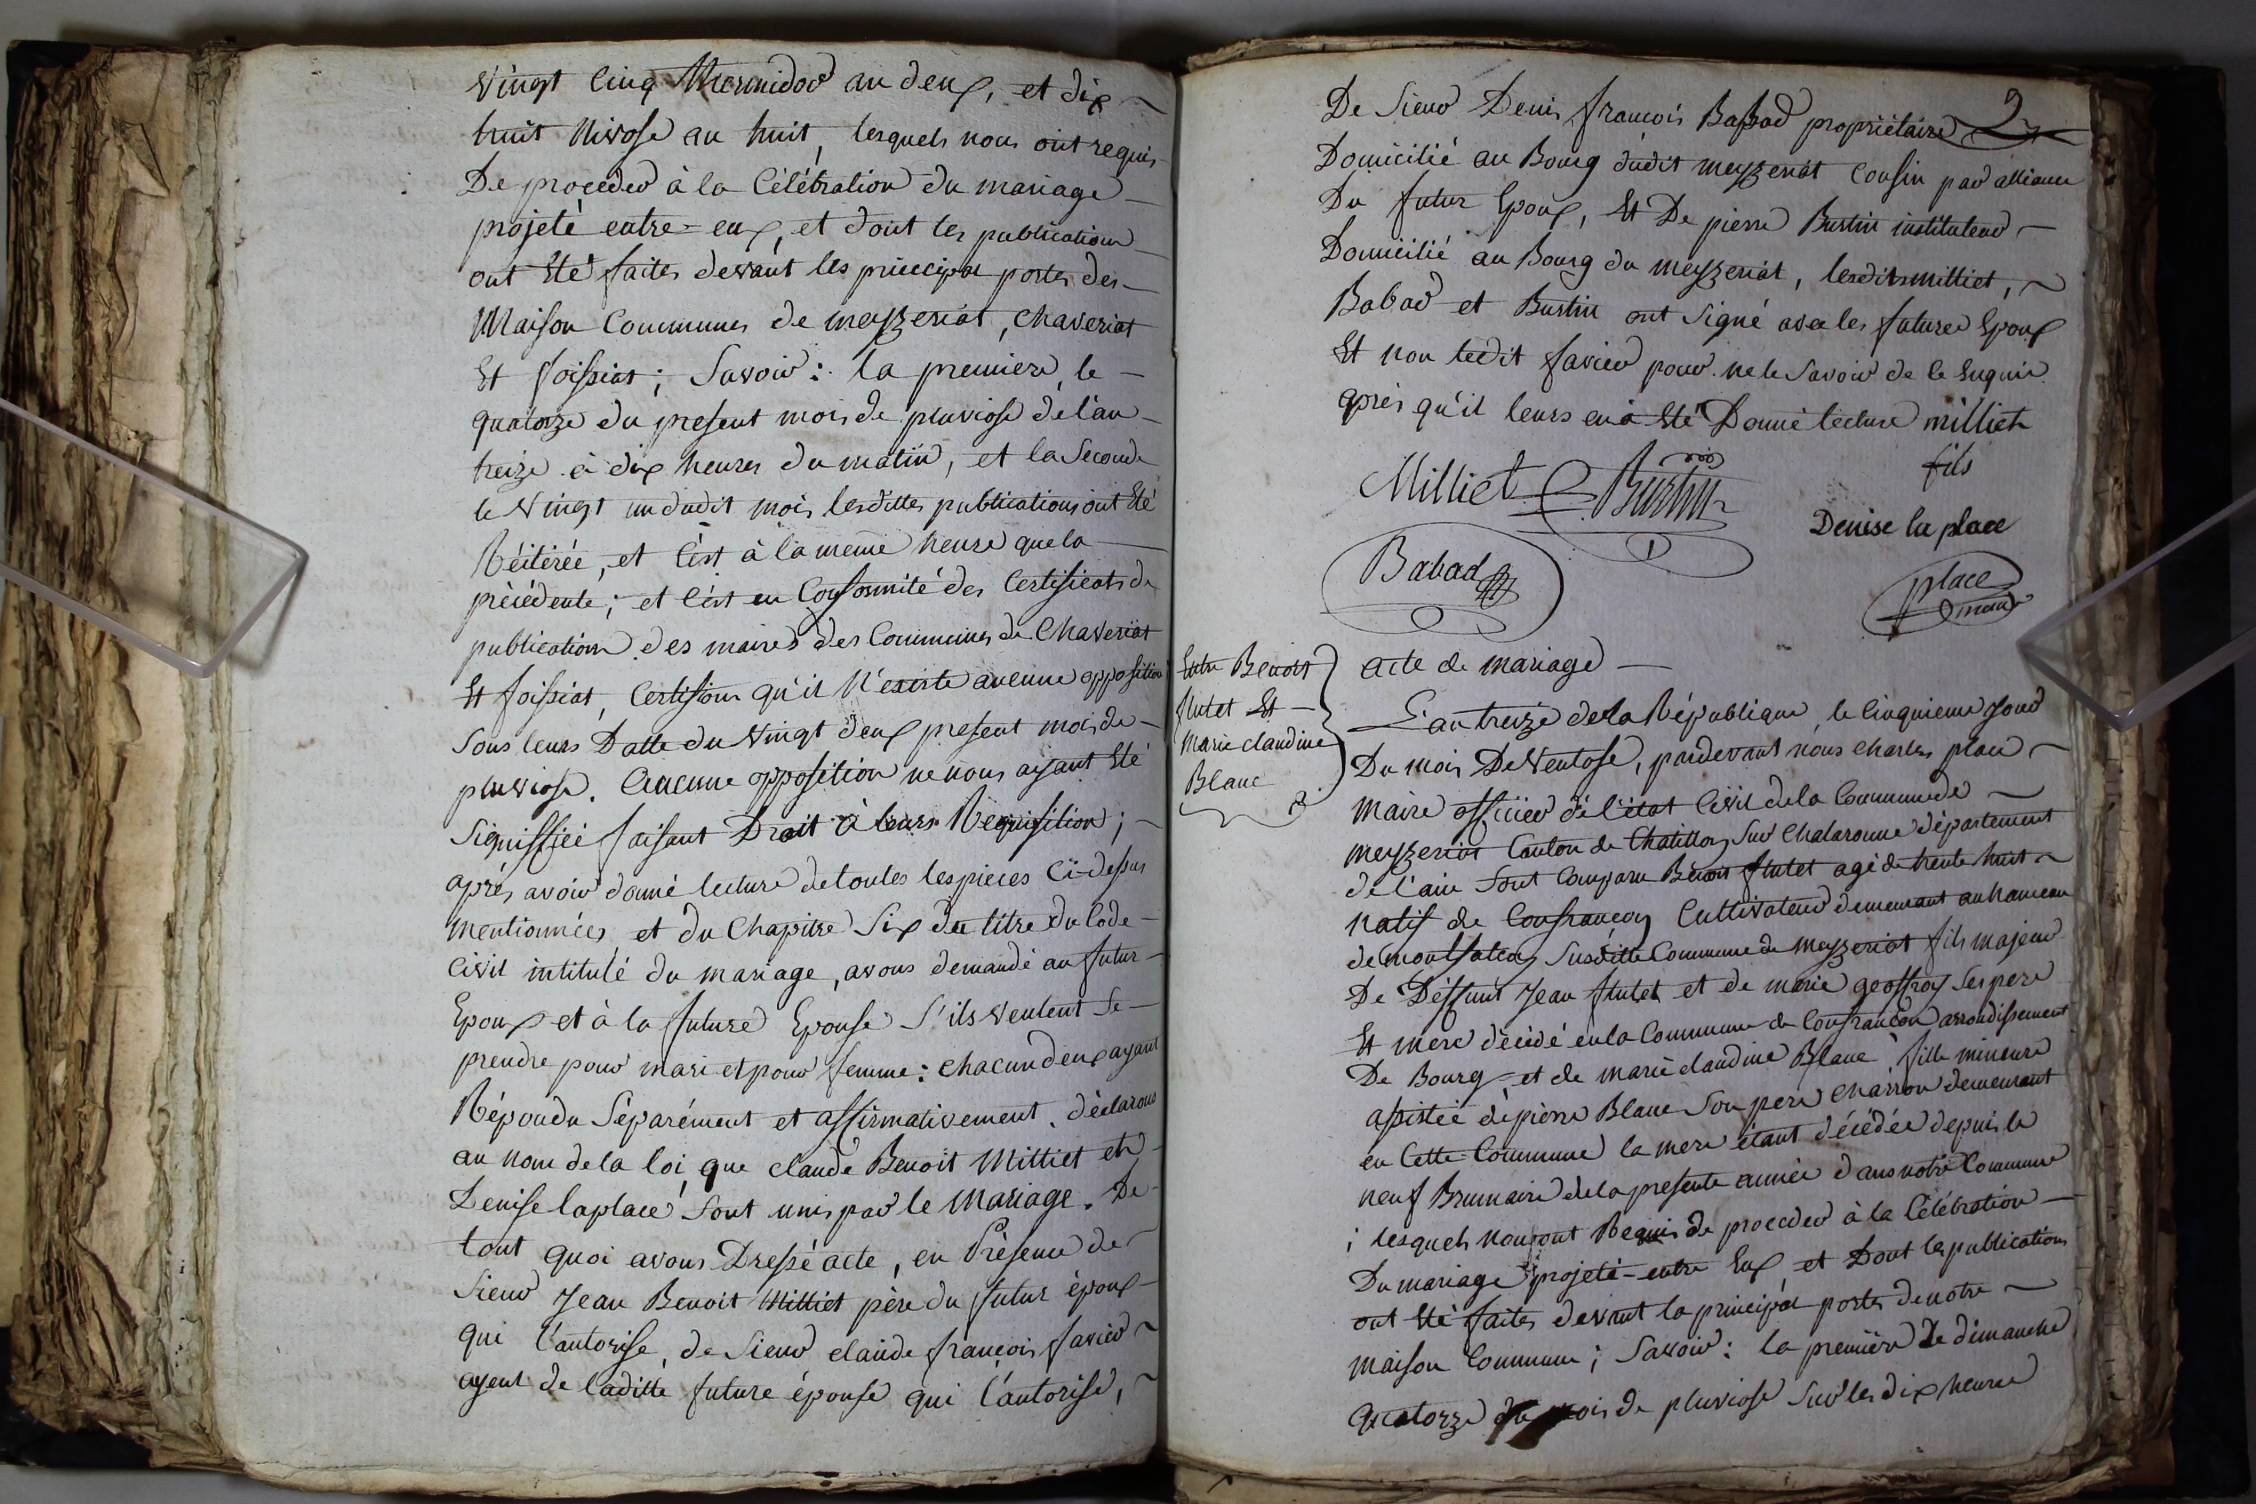 Vingt Cinq Thermidor an deux, et dix
huit Nivose an huit, lesquels nous ont requis
De proceder à la Célébration du mariage
projeté entre-eux, et dont les publications
ont Eté faites devant les principa portes des
Maison Communes de meyzeriat, Chaveriat
Et foissiat; Savoir: la premiere, le
quatorze du present mois de pluviose de l'an
treize à dix heures du matin, et la Seconde
le Vingt un dudit mois lesdittes publications ont Eté
Réiterée, et C'est à la même heure que la
précédente; et C'est en Conformité des Certificats de
publication des maires des Communes de Chaveriat
Et foissiat, Certifions qu'il N'existe aucune opposition
Sous leurs Datte du Vingt deux present mois de
pluviose. Aucune opposition ne nous ayant Eté
Signiffiée faisant Droit à leurs Requisition;
après avoir donné lecture de toutes les pieces Ci-dessus
mentionnées et du Chapitre Six du titre du Code
Civil intitulé du mariage, avons demandé au futur
Epoux et à la future Epouse S'ils veulent Se
prendre pour mari et pour femme: chacun deux ayant
Répondu Séparément et affirmativement, déclarons
au nom de la loi que claude Benoit Milliet et
Denise laplace Sont unis par le Mariage. De
tout quoi avons Dressé acte, en Présence de
Sieur Jean Benoit Milliet père du futur époux
qui l'autorise, de Sieur claude françois favier
ayeul de laditte future épouse qui l'autorise,
2
De Sieur Denis françois Babad propriétaire
Domicilié au Bourg dudit meyzeriat Cousin par alliance
Du futur Epoux, Et De pierre Burtin instituteur
Domicilié au Bourg du meyzeriat, lesdits milliet,
Babad et Burtin ont Signé avec les future Epoux
Et non ledit favier pour ne le Savoir de ce Enquis
après qu'il leurs en à Eté Donné lecture milliet
fils
Milliet Burtin
Denise la place
Babad
place
maire
Entre Benoit
flutet Et
Marie claudine
Blanc
acte de mariage
L'an treize de la République, le Cinquieme Jour
Du mois De Ventose, pardevant nous Charles place
maire officier de l'état Civil de la Commune de
meyzeriat Canton de Chatillon Sur Chalaronne département
de l'ain Sont Comparu Benoit flutet agé de trente huit
natif de Confrançon Cultivateur demeurant au hameau
de Susditte Commune de meyzeriat fils majeur
De Deffunt Jean flutet et de marie geoffroy Ses pere
Et mere décédé en la Commune de Confrançon arrondissement
De Bourg, et de marie claudine Blanc fille mineure
assistée de pierre Blanc Son pere charron demeurant
en Cette Commune la mere étant décédée depuis le
neuf Brumaire de la presente année dans notre Commune
; lesquels nous ont Requis de proceder à la Célébration
Du mariage projeté entre Eux, et Dont les publications
ont Eté faites devant la principa portes de notre
maison Commune; Savoir: la premiere le dimanche
quatorze du mois de pluviose Sur les dix heure